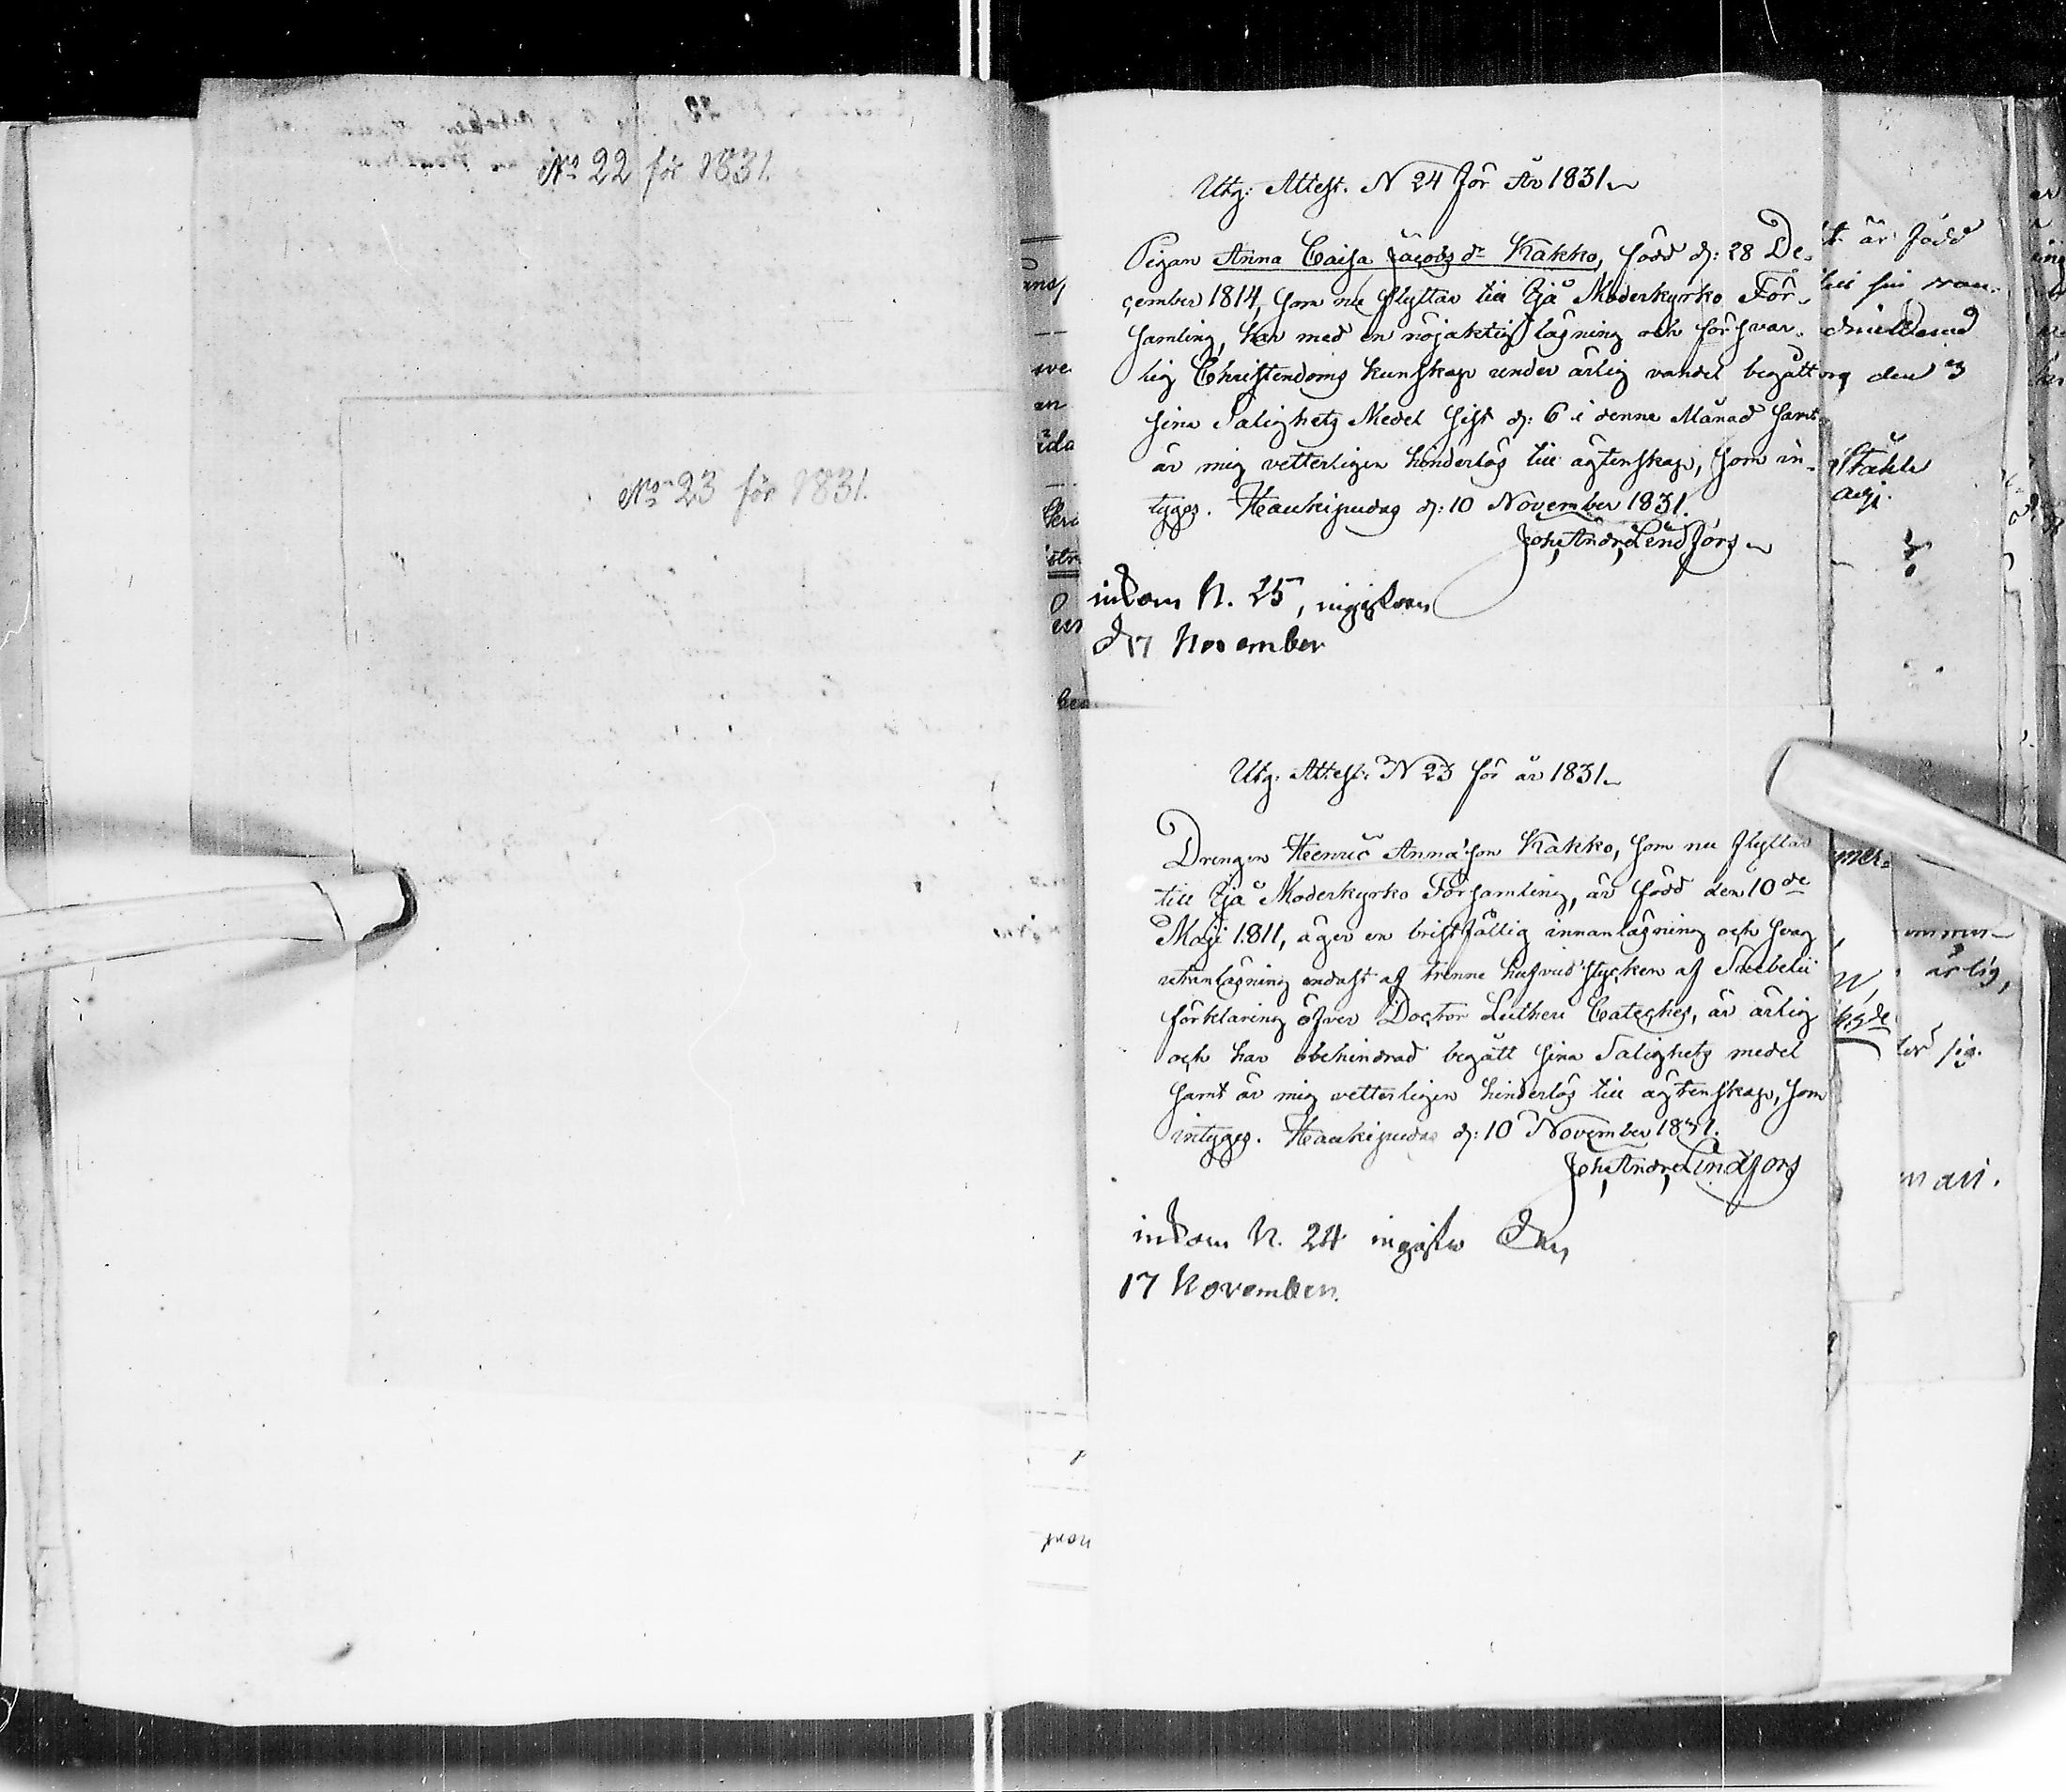 No 22 för 1831.
No 23 för 1831.
Utg: Attest. N 24 för År 1831
Pigan Anna Caisa Jacobs dr Kakko, född d: 28 De-
cember 1814, som nu flyttar till Ijå Moderkyrko För-
samling, har med en nöjaktig läsning och försvar-
lig Christendoms kunskap under ärlig vandel begått
sina Salighets Medel sist d: 6 i denna Månad samt
är mig vetterligen hinderlös till ägtenskap, som in-
tyges. Haukipudas d: 10 November 1831.
Joh: Andr: Lindfors
inkom N. 25,
d 17 November
Utg: Attest: N 23 för år 1831
Drengen Henric Anna's son Kakko, som nu flyttar
till Ijå Moderkyrko Församling, är född den 10de
Maji 1811, äger en bristfällig innanläsning och svag
utanläsning endast af trenne hufvudstycken af Svebelii
förklaring öfver Doctor Lutheri Cateches, är ärlig
och har obehindrad begått sina Salighets medel
samt är mig vetterligen hinderlös till ägtenskap, som
intyges. Haukipudas d: 10 November 1831.
Joh: Andr: Lindfors
inkom N. 24 den
17 November.
är född
den 3
ärlig,